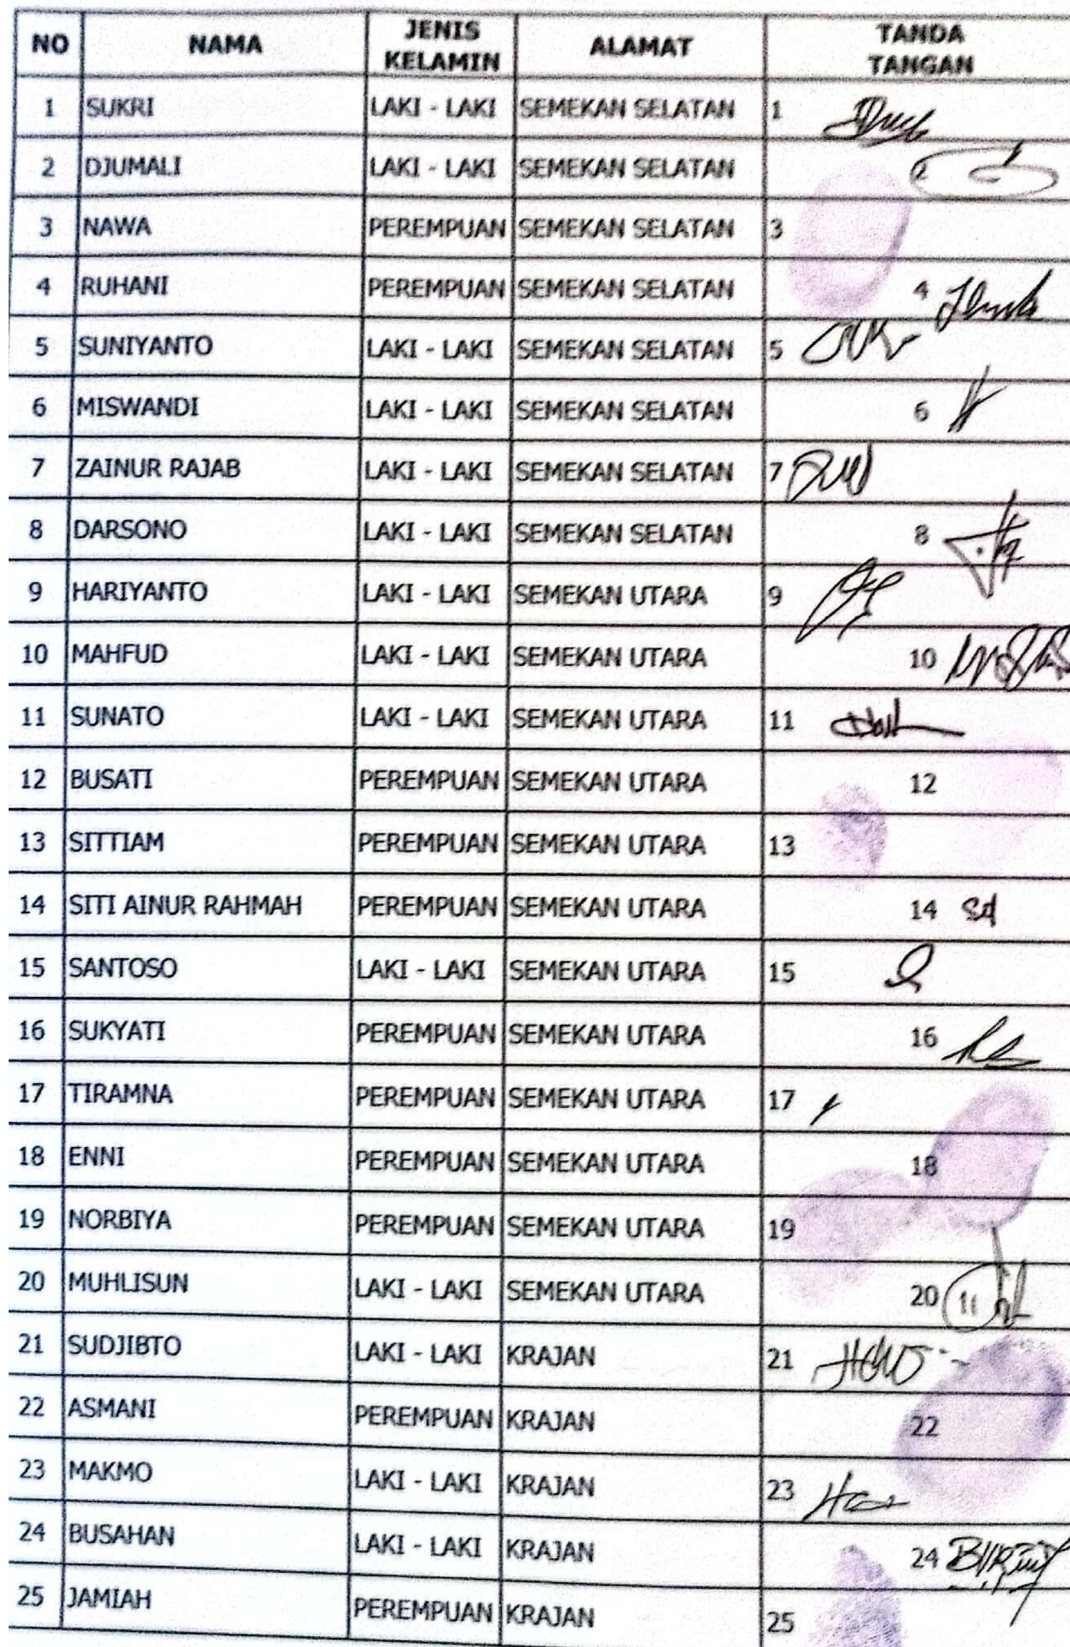 NO NAMA JENIS KELAMIN ALAMAT TANDA TANGAN
1 SUKRI LAKI - LAKI SEMEKAN SELATAN 1
2 DJUMALI LAKI - LAKI SEMEKAN SELATAN 2
3 NAWA PEREMPUAN SEMEKAN SELATAN 3
4 RUHANI PEREMPUAN SEMEKAN SELATAN 4
5 SUNIYANTO LAKI - LAKI SEMEKAN SELATAN 5
6 MISWANDI LAKI - LAKI SEMEKAN SELATAN 6
7 ZAINUR RAJAB LAKI - LAKI SEMEKAN SELATAN 7
8 DARSONO LAKI - LAKI SEMEKAN SELATAN 8
9 HARIYANTO LAKI - LAKI SEMEKAN UTARA 9
10 MAHFUD LAKI - LAKI SEMEKAN UTARA 10
11 SUNATO LAKI - LAKI SEMEKAN UTARA 11
12 BUSATI PEREMPUAN SEMEKAN UTARA 12
13 SITTIAM PEREMPUAN SEMEKAN UTARA 13
14 SITI AINUR RAHMAH PEREMPUAN SEMEKAN UTARA 14
15 SANTOSO LAKI - LAKI SEMEKAN UTARA 15
16 SUKYATI PEREMPUAN SEMEKAN UTARA 16
17 TIRAMNA PEREMPUAN SEMEKAN UTARA 17
18 ENNI PEREMPUAN SEMEKAN UTARA 18
19 NORBIYA PEREMPUAN SEMEKAN UTARA 19
20 MUHLISUN LAKI - LAKI SEMEKAN UTARA 20
21 SUDJIBTO LAKI - LAKI KRAJAN 21
22 ASMANI PEREMPUAN KRAJAN 22
23 MAKMO LAKI - LAKI KRAJAN 23
24 BUSAHAN LAKI - LAKI KRAJAN 24
25 JAMIAH PEREMPUAN KRAJAN 25